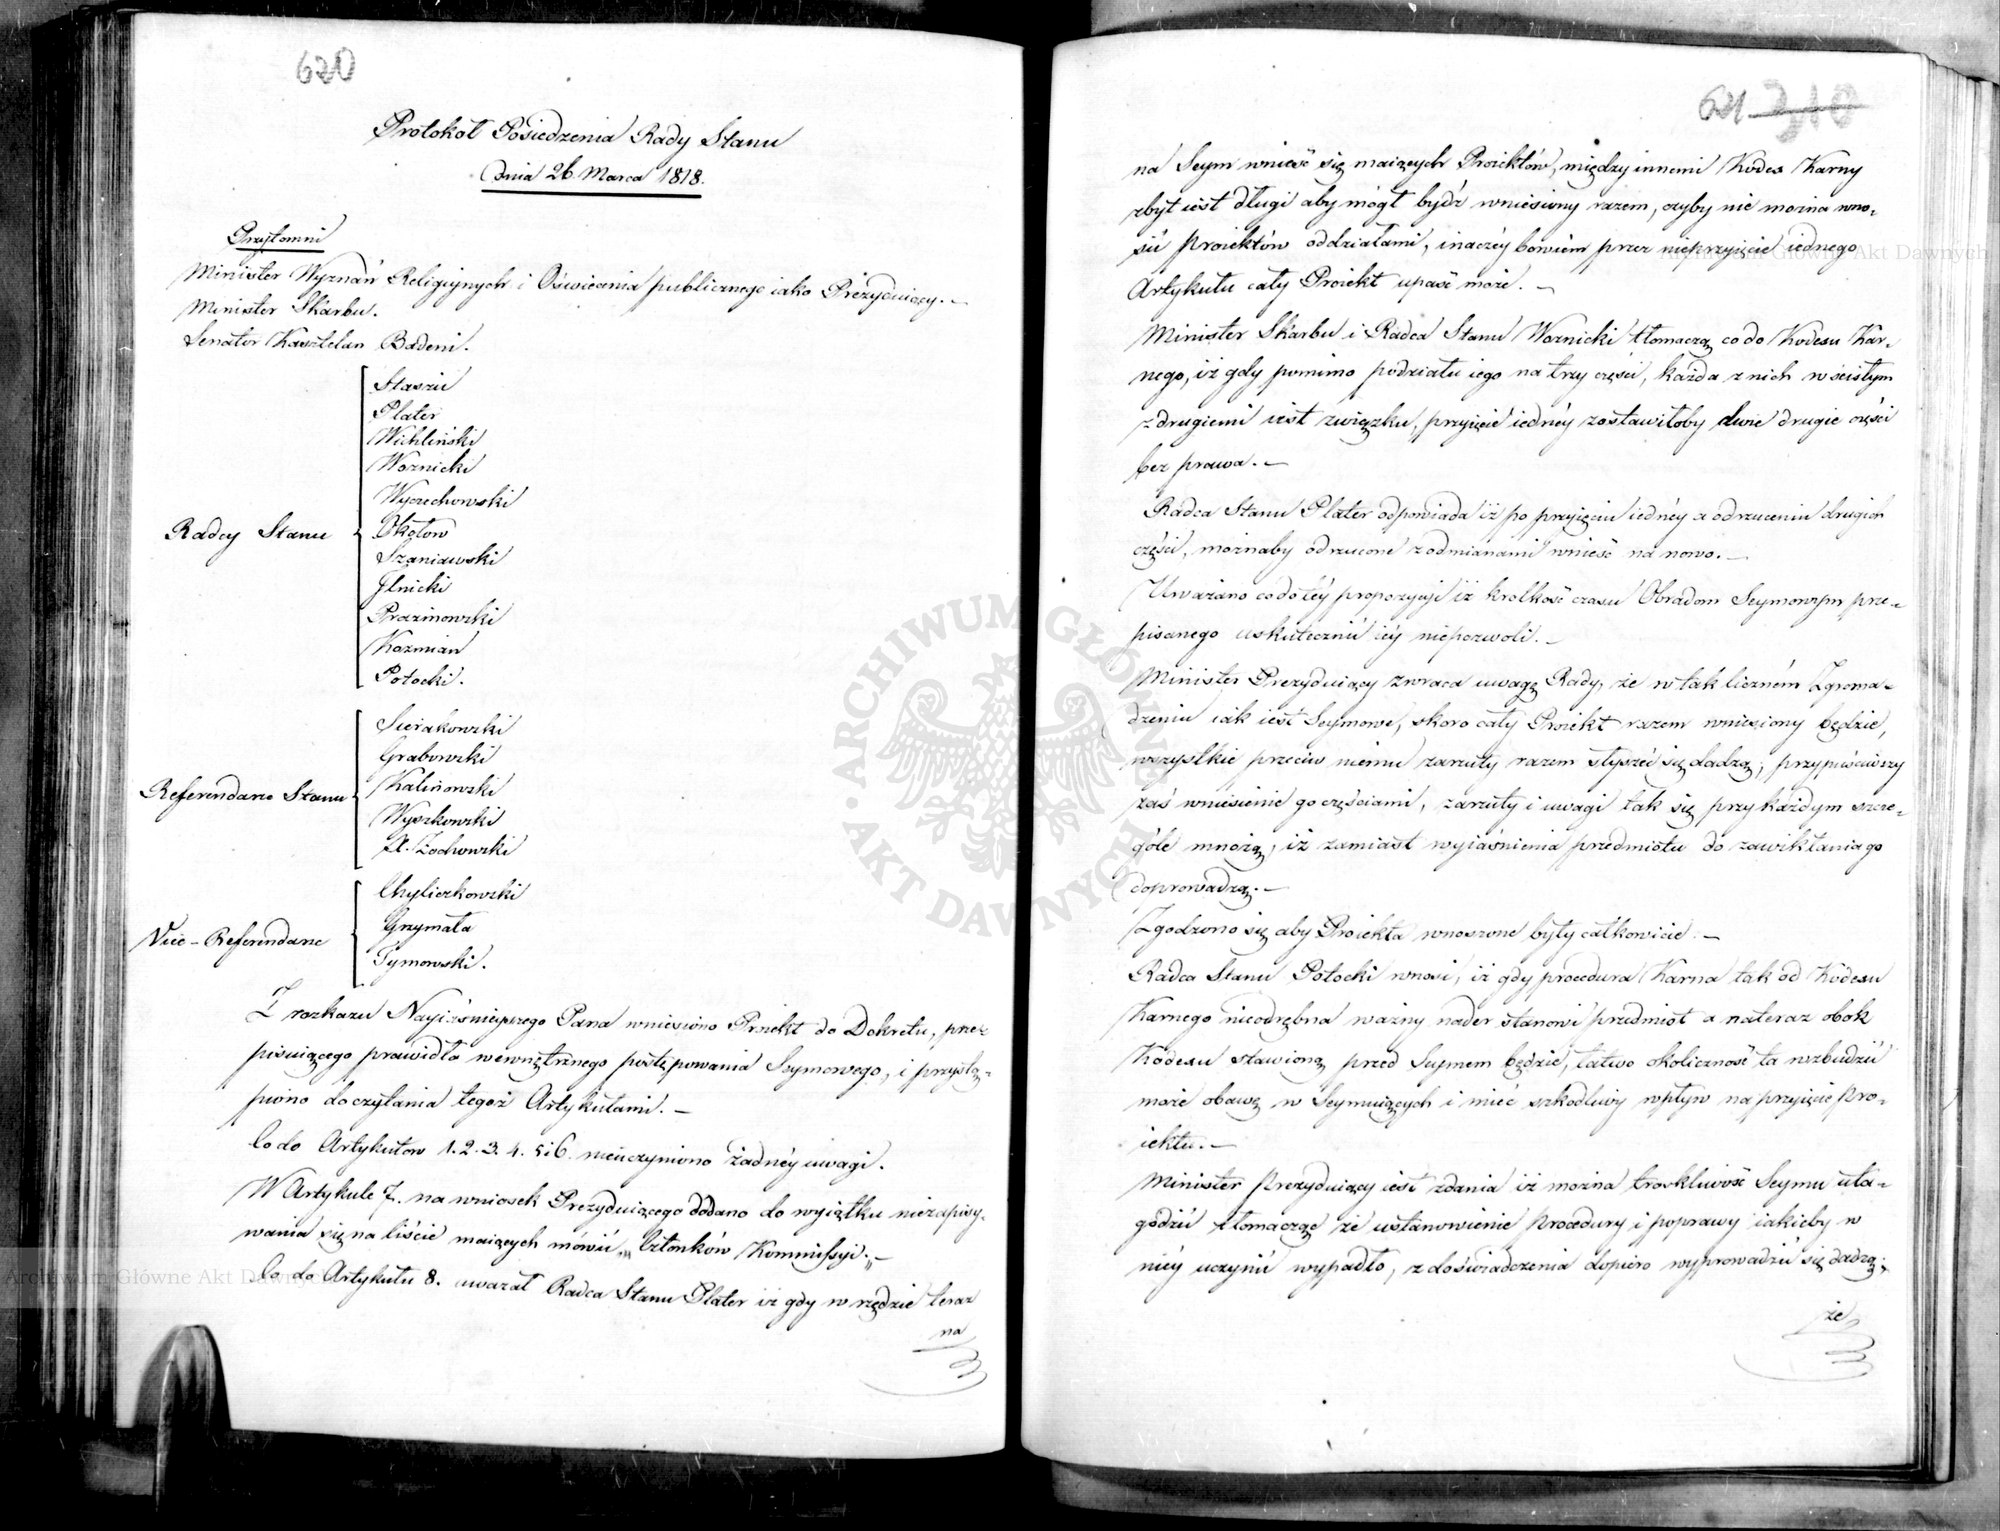 620
Protokół Posiedzenia Rady Stanu
Dnia 26. Marca 1818.
Przytomni
Minister Wyznań Religijnych i Oświecenia publicznego iako Prezyduiący. —
Minister Skarbu.
Senator Kasztelan Badeni.
Radcy Stanu
Staszic
Plater
Wichliński
Woznicki
Wyczechowski
Okołow
Szaniawski
Jlnicki
Prazmowski
Kozmian
Potocki.
Referendarze Stanu
Sierakowski
Grabowski
Kalinowski
Wyszkowski
X. Żochowski
Vice-Referendarze
Chyliczkowski
Grzymała
Tymowski.
Z rozkazu Nayiaśnieyszego Pana wniesiono Proiekt do Dekretu, prze-
pisuiącego prawidła wewnętrznego postępowania Seymowego, i przystą-
piono do czytania tegoż Artykułami. —
Co do Artykułow 1. 2. 3. 4. 5 i 6. nieuczyniono żadnéy uwagi.
W Artykule 7. na wniosek Prezyduiącego dodano do wyiątku niezapisy-
wania się na liście maiących mówić „Członków Kommissyi„ —
Co do Artykułu 8. uważał Radca Stanu Plater iż gdy w rzędzie teraz
na
621 310
na Seym wnieść się maiących Proiektów, między innemi Kodex Karny
zbyt iest długi aby mógł bydź wniesiony razem, czyby nie można wno-
sić proiektów oddziałami, inaczéy bowiem przez nieprzyięcie iednego
Artykułu cały Proiekt upaść może. —
Minister Skarbu i Radca Stanu Woznicki tłomaczą co do Kodexu Kar-
nego, iż gdy pomimo podziału iego na trzy części, każda z nich w ścisłym
z drugiemi iest związku, przyięcie iednéy zostawiłoby dwie drugie części
bez prawa. —
Radca Stanu Plater odpowiada iż po przyięciu iednéy a odrzuceniu drugich
części, możnaby odrzucone z odmianami wnieść na nowo. —
Uważano co do téy propozycyi iż krotkość czasu Obradom Seymowym prze-
pisanego uskutecznić iéy niepozwoli. —
Minister Prezyduiący zwraca uwagę Rady, że w tak liczném Zgroma-
dzeniu iak iest Seymowe, skoro cały Proiekt razem wniesiony będzie,
wszystkie przeciw niemu zarzuty razem słyszéć się dadzą; przypuściwszy
zaś wniesienie go częściami, zarzuty i uwagi tak się przy każdym szcze-
góle mnożą, iż zamiast wyiaśnienia przedmiotu do zawikłania go
doprowadzą. —
Zgodzono się aby Proiekta wnoszone były całkowicie. —
Radca Stanu Potocki wnosi, iż gdy procedura Karna tak od Kodexu
Karnego nieodrębna ważny nader stanowi przedmiot a nateraz obok
Kodexu stawioną przed Seymem będzie, łatwo okoliczność ta wzbudzić
może obawę w Seymuiących i mieć szkodliwy wpływ na przyięcie Pro-
iektu. —
Minister Prezyduiący iest zdania iż można troskliwość Seymu uła-
godzić tłomacząc że ustanowienie Procedury i poprawy iakieby w
niéy uczynić wypadło, z doświadczenia dopiero wyprowadzić się dadzą;
że
ARCHIWUM GŁÓWNE AKT DAWNYCH
Archiwum Główne Akt Dawnych
Archiwum Główne Akt Dawnych